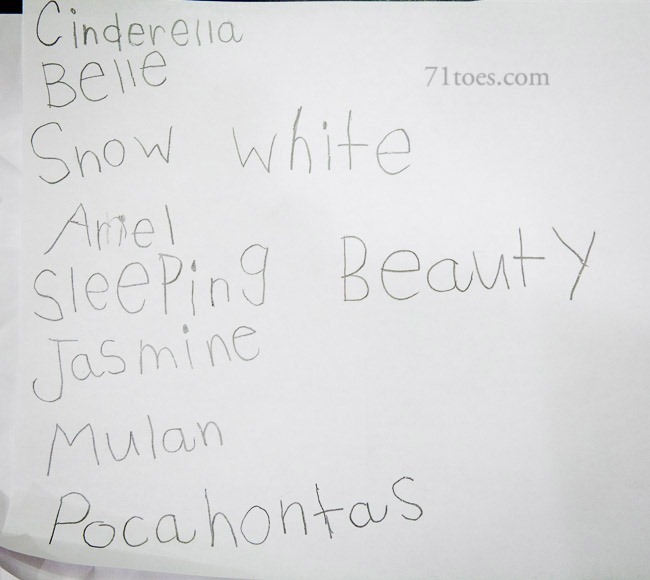 Cinderella
Belle
71toes.com
Snow white
Ariel
Sleeping Beauty
Jasmine
Mulan
Pocahontas